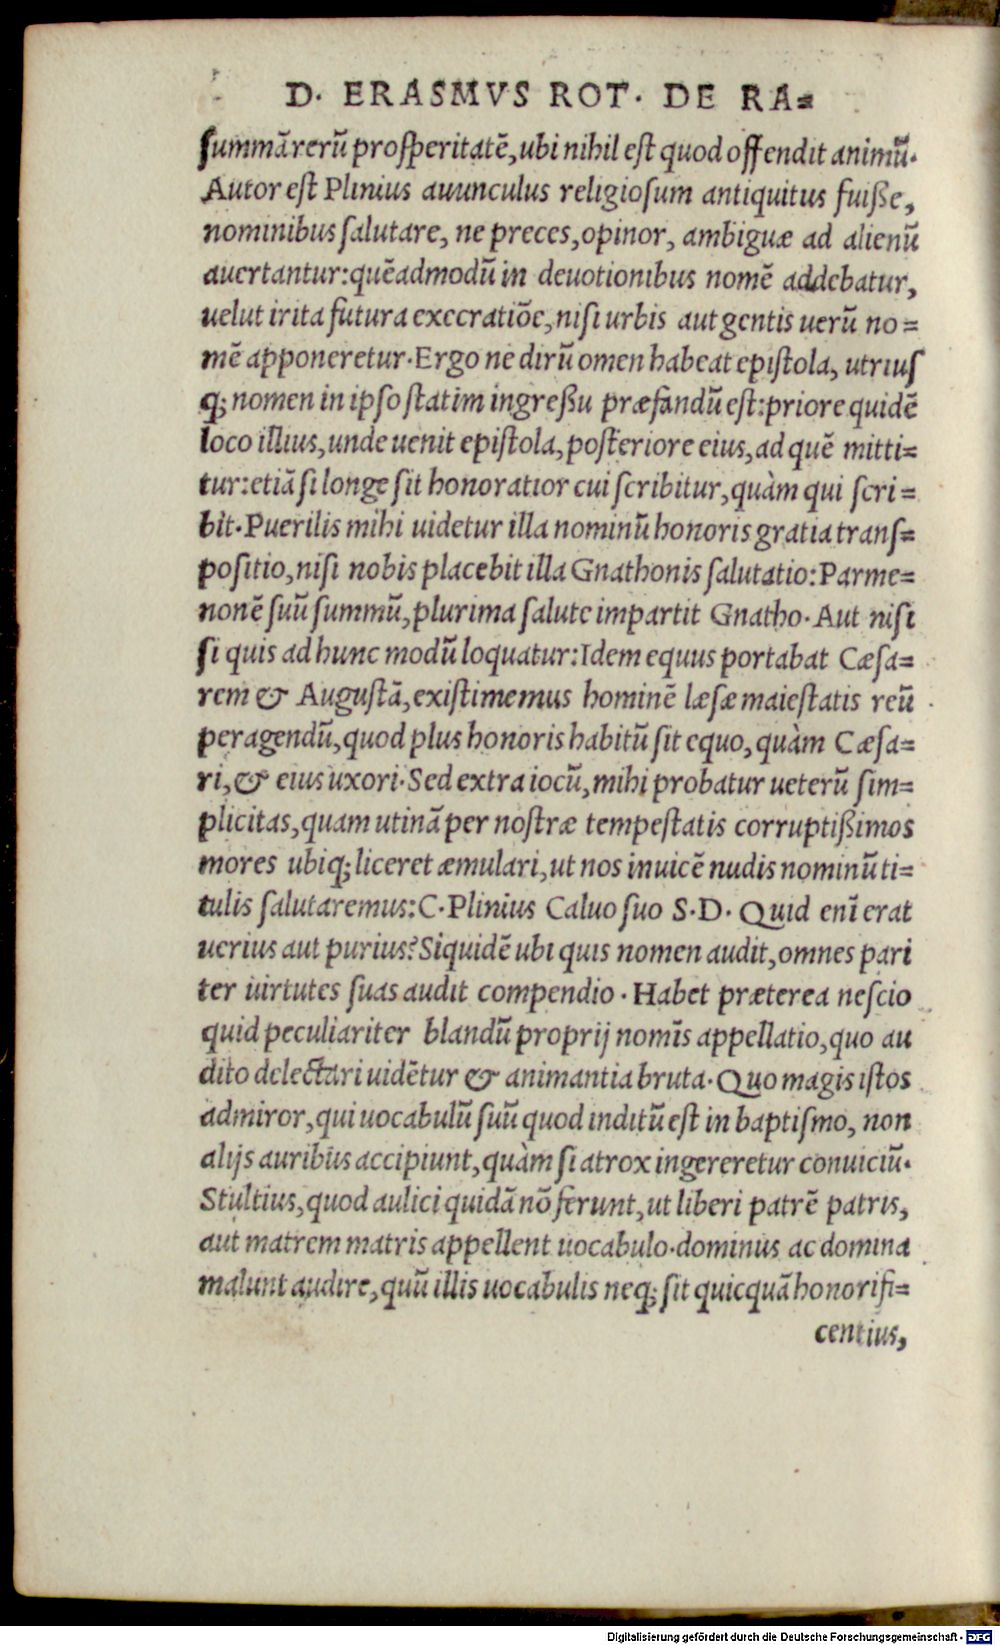 D. ERASMVS ROT. DE RA=
ſummā rerū proſperitatē, ubi nihil eſt quod offendit animū.
Autor eſt Plinius auunculus religioſum antiquitus fuiße,
nominibus ſalutare, ne preces, opinor, ambiguæ ad alienū
auertantur: quēadmodū in deuotionibus nomē addebatur,
uelut irita futura execratiōe, niſi urbis aut gentis uerū no=
mē apponeretur. Ergo ne dirū omen habeat epiſtola, utriuſ
q; nomen in ipſo ſtatim ingreßu præfandū eſt: priore quidē
loco illius, unde uenit epiſtola, poſteriore eius, ad quē mitti=
tur: etiā ſi longe ſit honoratior cui ſcribitur, quàm qui ſcri=
bit. Puerilis mihi uidetur illa nominū honoris gratia tranſ=
poſitio, niſi nobis placebit illa Gnathonis ſalutatio: Parme=
nonē ſuū ſummū, plurima ſalute impartit Gnatho. Aut niſi
ſi quis ad hunc modū loquatur: Idem equus portabat Cæſa=
rem & Auguſtā, exiſtimemus hominē læſæ maieſtatis reū
peragendū, quod plus honoris habitū ſit equo, quàm Cæſa=
ri, & eius uxori. Sed extra iocū, mihi probatur ueterū ſim=
plicitas, quam utinā per noſtræ tempeſtatis corruptißimos
mores ubiq; liceret æmulari, ut nos inuicē nudis nominū ti=
tulis ſalutaremus: C. Plinius Caluo ſuo S. D. Quid enī erat
uerius aut purius? Siquidē ubi quis nomen audit, omnes pari
ter uirtutes ſuas audit compendio. Habet præterea neſcio
quid peculiariter blandū proprij nomīs appellatio, quo au
dito delectari uidētur & animantia bruta. Quo magis iſtos
admiror, qui uocabulū ſuū quod inditū eſt in baptiſmo, non
alijs auribus accipiunt, quàm ſi atrox ingereretur conuiciū.
Stultius, quod aulici quidā nō ferunt, ut liberi patrē patris,
aut matrem matris appellent uocabulo. dominus ac domina
malunt audire, quū illis uocabulis neq; ſit quicquā honorifi=
centius,
Digitalisierung gefördert durch die Deutsche Forschungsgemeinschaft - DFG